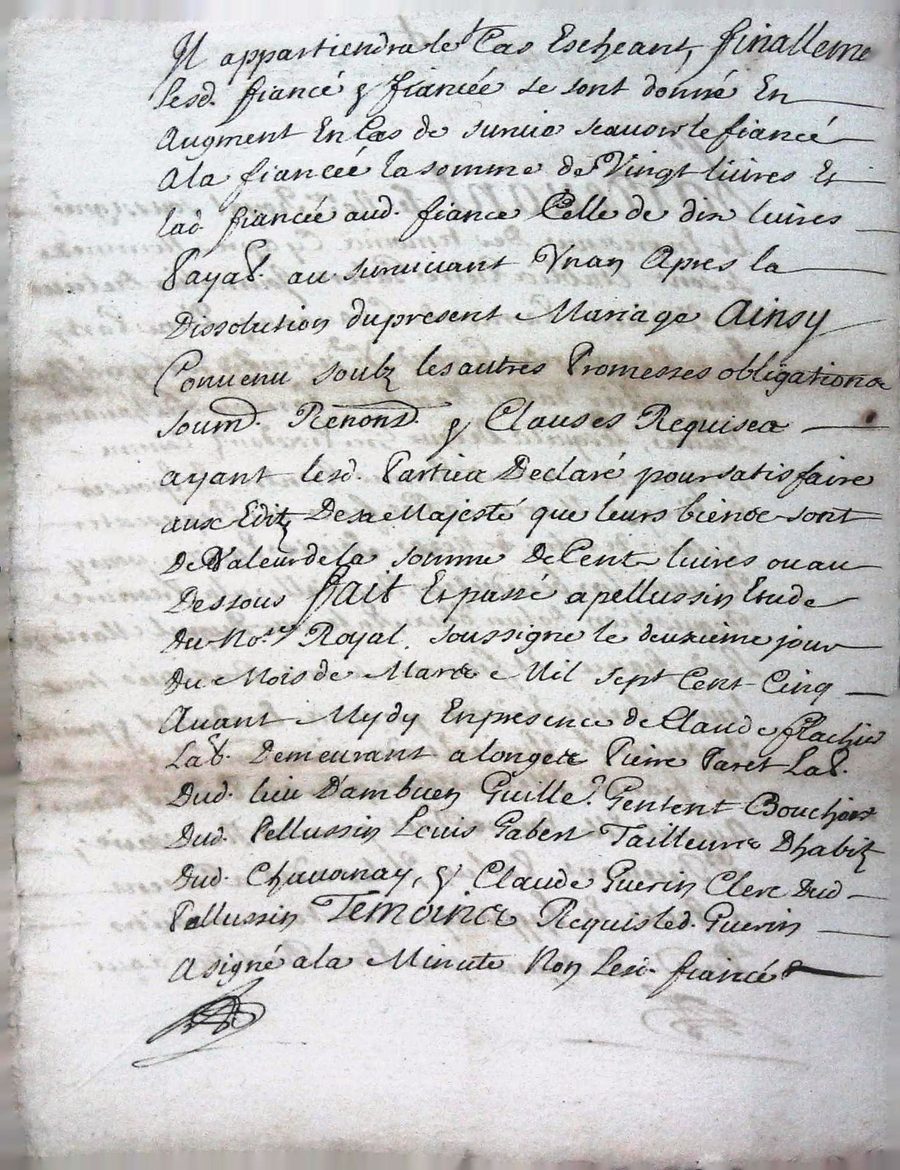 Il appartiendra le^t Cas Escheant, finalleme
lesd. fiancé & fiancée se sont donné En
Augment En Cas de survie scauoir le fiancé
A la fiancée la somme de Vingt liures Et
lad. fiancée aud. fiance Celle de dix liures
Payab. au suruiuant Vn an Apres la
Dissolution du present Mariage Ainsy
Conuenu soubz les autres Promesses obligations
soum.^d Renond. & Clauses Requises
ayant lesd. Parties Declaré pour satisfaire
aux Editz De sa Majesté que leurs biens sont
De Valeur de la somme de Cent liures ou au
Dessous fait Et passé a pellussin Etude
du No.^re Royal soussigne le deuxieme jour
du Mois de Mars Mil sept Cent Cinq
Auant Mydy En presence de Claude flachier
Lab. Demeurant a longes Pierre Paret Lab.
Dud. lieu D'ambuen Guille.^e Gentent Boucher
Dud. Pellussin Louis Gabert Tailleurs Dhabitz
dud. Chauanay, & Claude Guerin Clerc Dud
Pellussin Temoins Requis led. Guerin
A signé a la Minute Non Lesd. fiancés